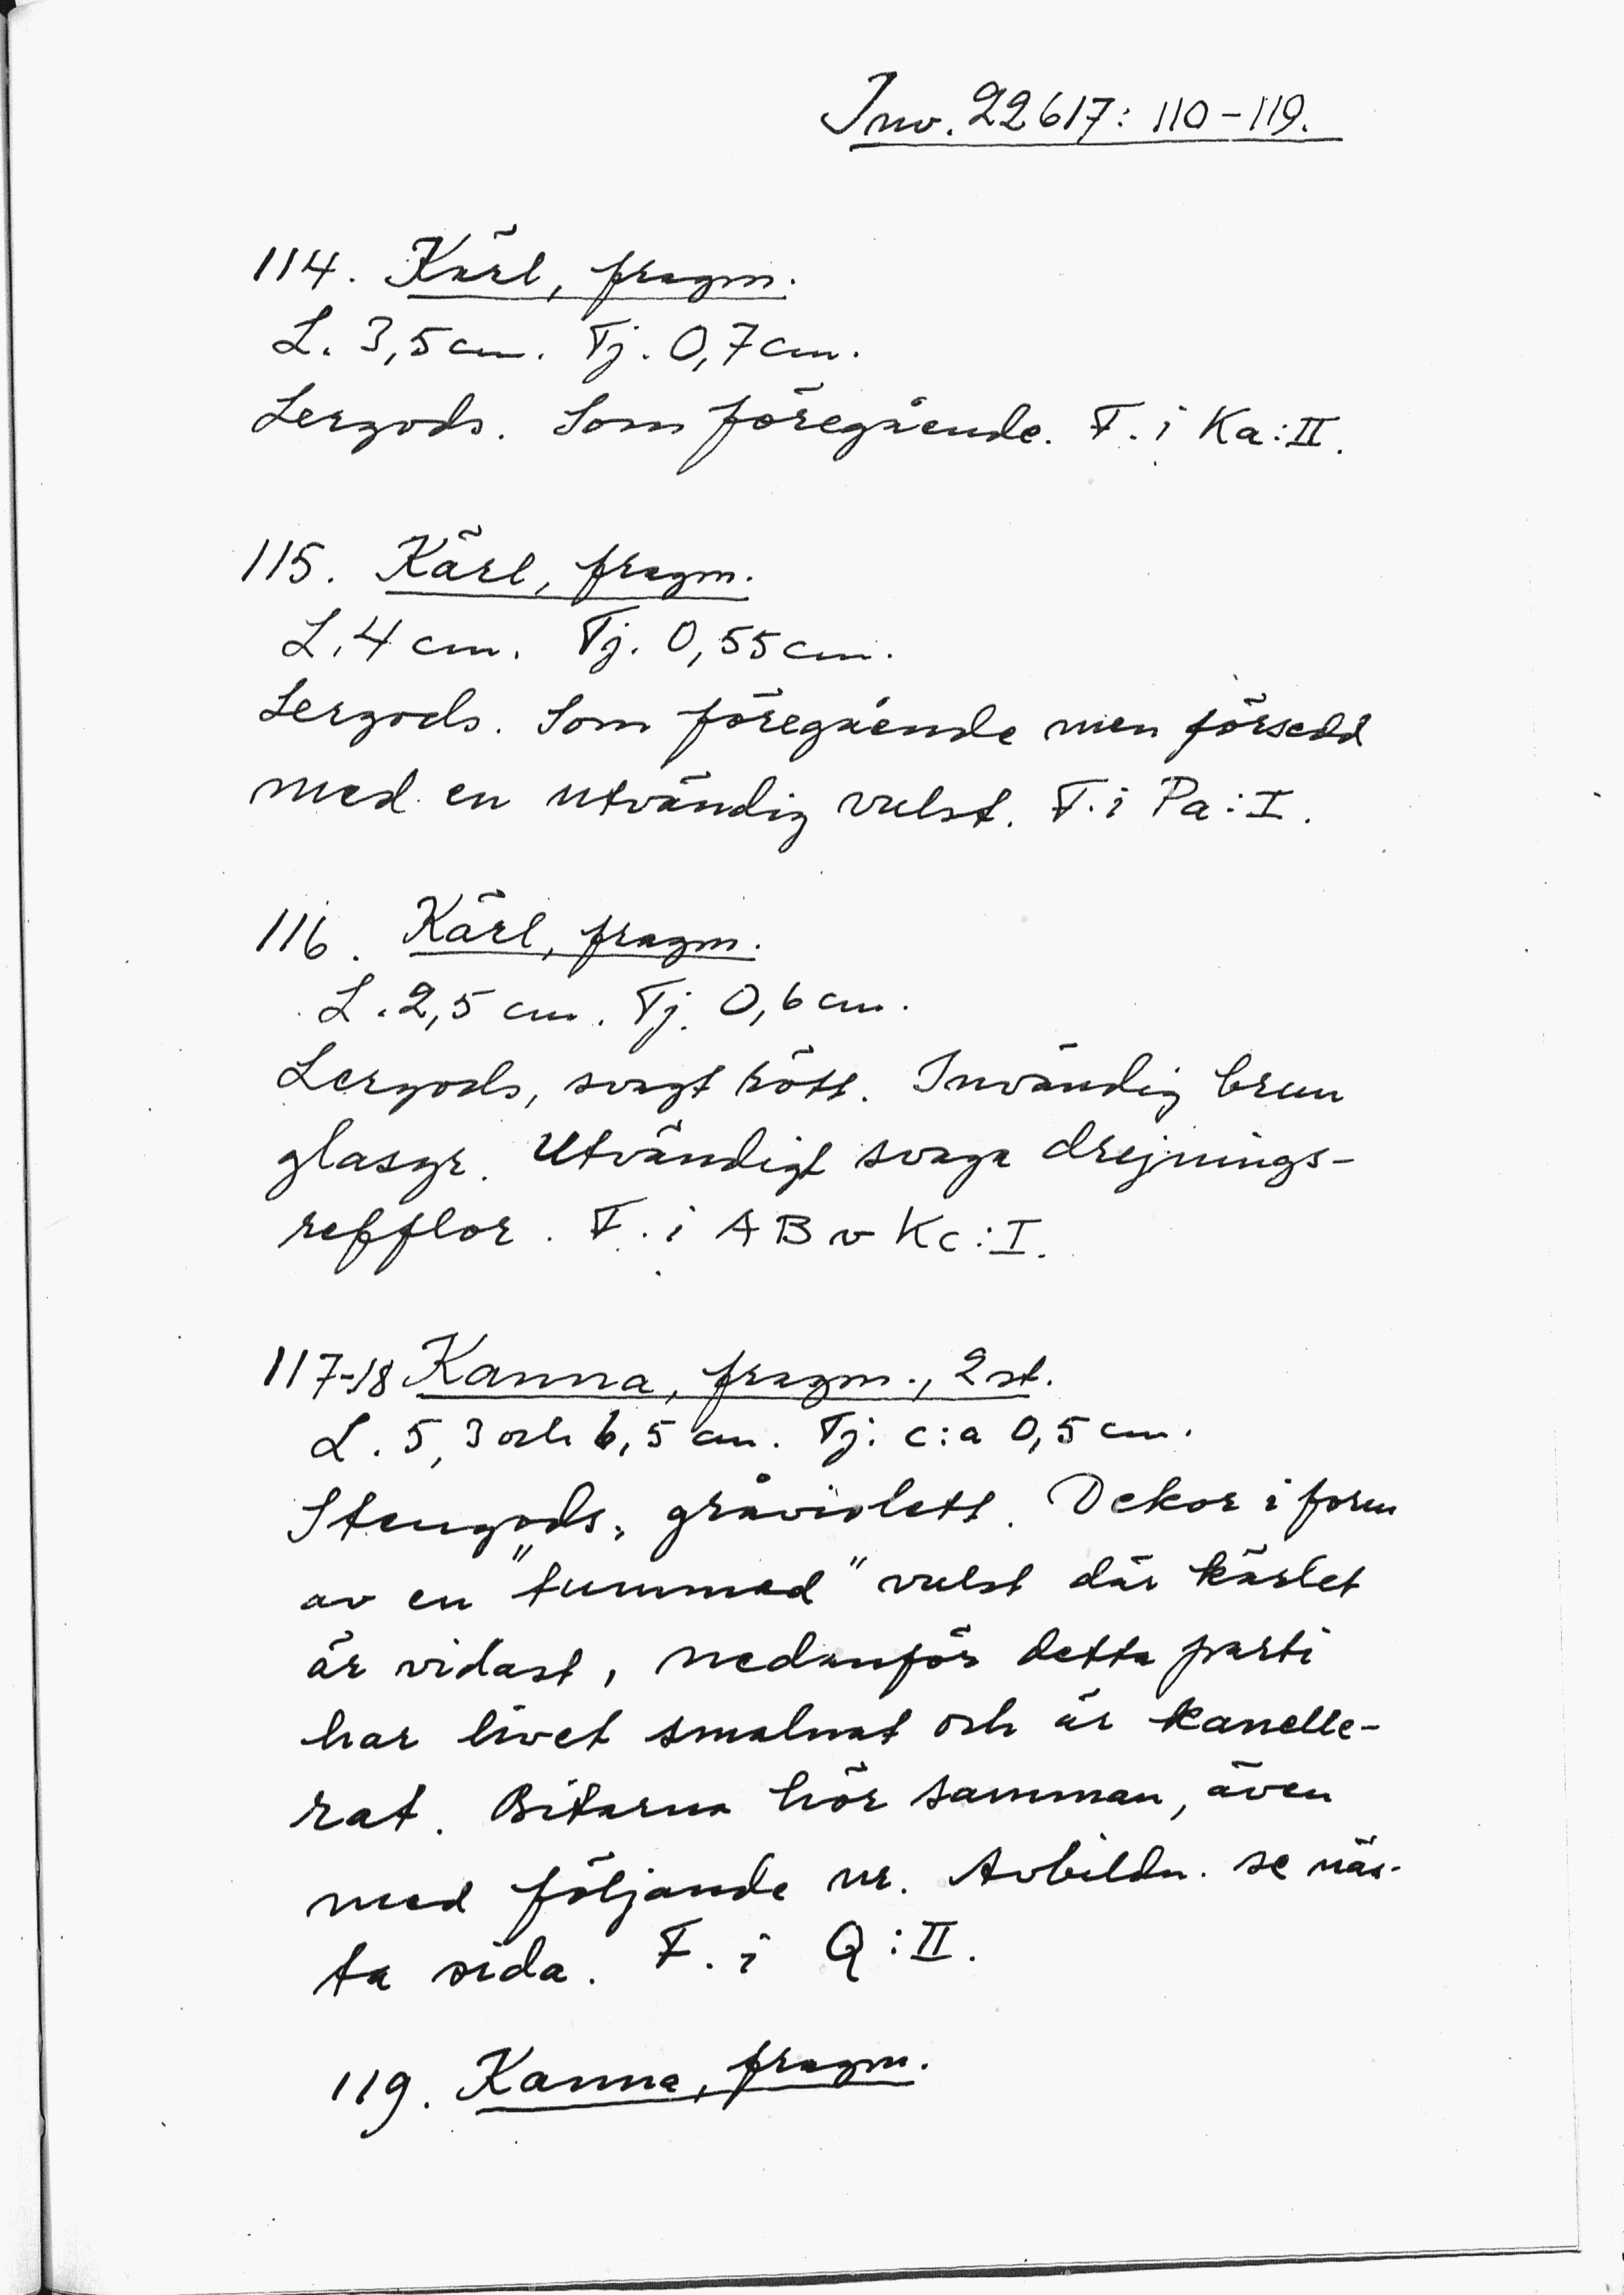 Inv. 22617: 110-119.
114. Kärl, fragm.
L. 3,5 cm. Tj. 0,7 cm.
Lergods. Som föregående. F. i Ka:II.
115. Kärl, fragm.
L. 4 cm. Tj. 0,55 cm.
Lergods. Som föregående men försedd
med en utvändig vulst. F. i Pa:I.
116. Kärl, fragm.
L. 2,5 cm. Tj. 0,6 cm.
Lergods, svagt rött. Invändig brun
glasyr. Utvändigt svaga drejnings-
refflor. F. i ABv Kc:I.
117-18 Kanna, fragm., 2 st.
L. 5,3 och 6,5 cm. Tj. c:a 0,5 cm.
Stengods, gråviolett. Dekor i form
av en "tummad" vulst där kärlet
är vidast, nedanför detta parti
har livet smalnat och är kanelle-
rat. Bitarna hör samman, även
med följande nr. Avbildn. se näs-
ta sida. F. i Q:II.
119. Kanna, fragm.